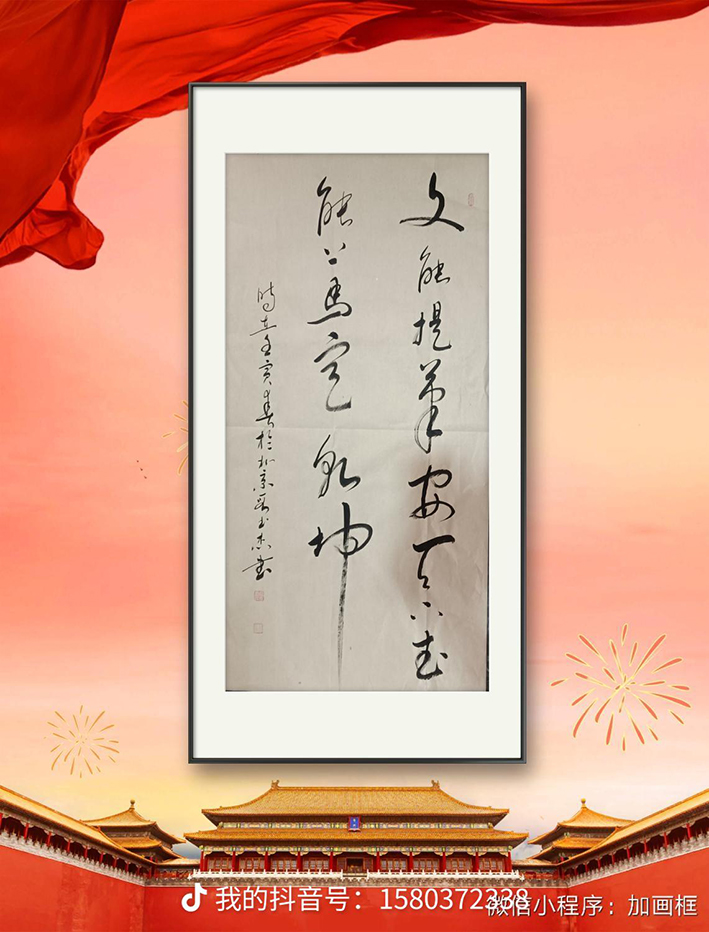 文能提笔安天下武
能上马定乾坤
时在壬寅春於北京
书
我的抖音号：1580372338
微信小程序：加画框